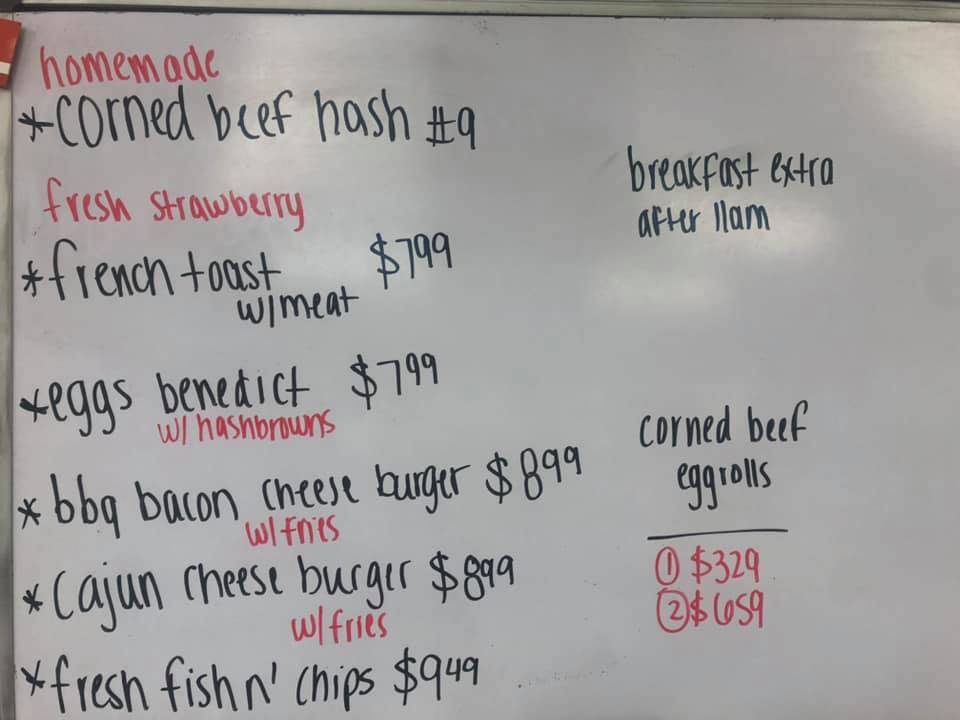 homemade
*corned beef hash #9
fresh strawberry
*french toast $799
w/meat
*eggs benedict $799
w/hashbrowns
*bbq bacon cheese burger $899
w/fries
*Cajun cheese burger $899
w/fries
*fresh fish n' chips $949
breakfast extra
after 11am
corned beef
eggrolls
① $329
② $659